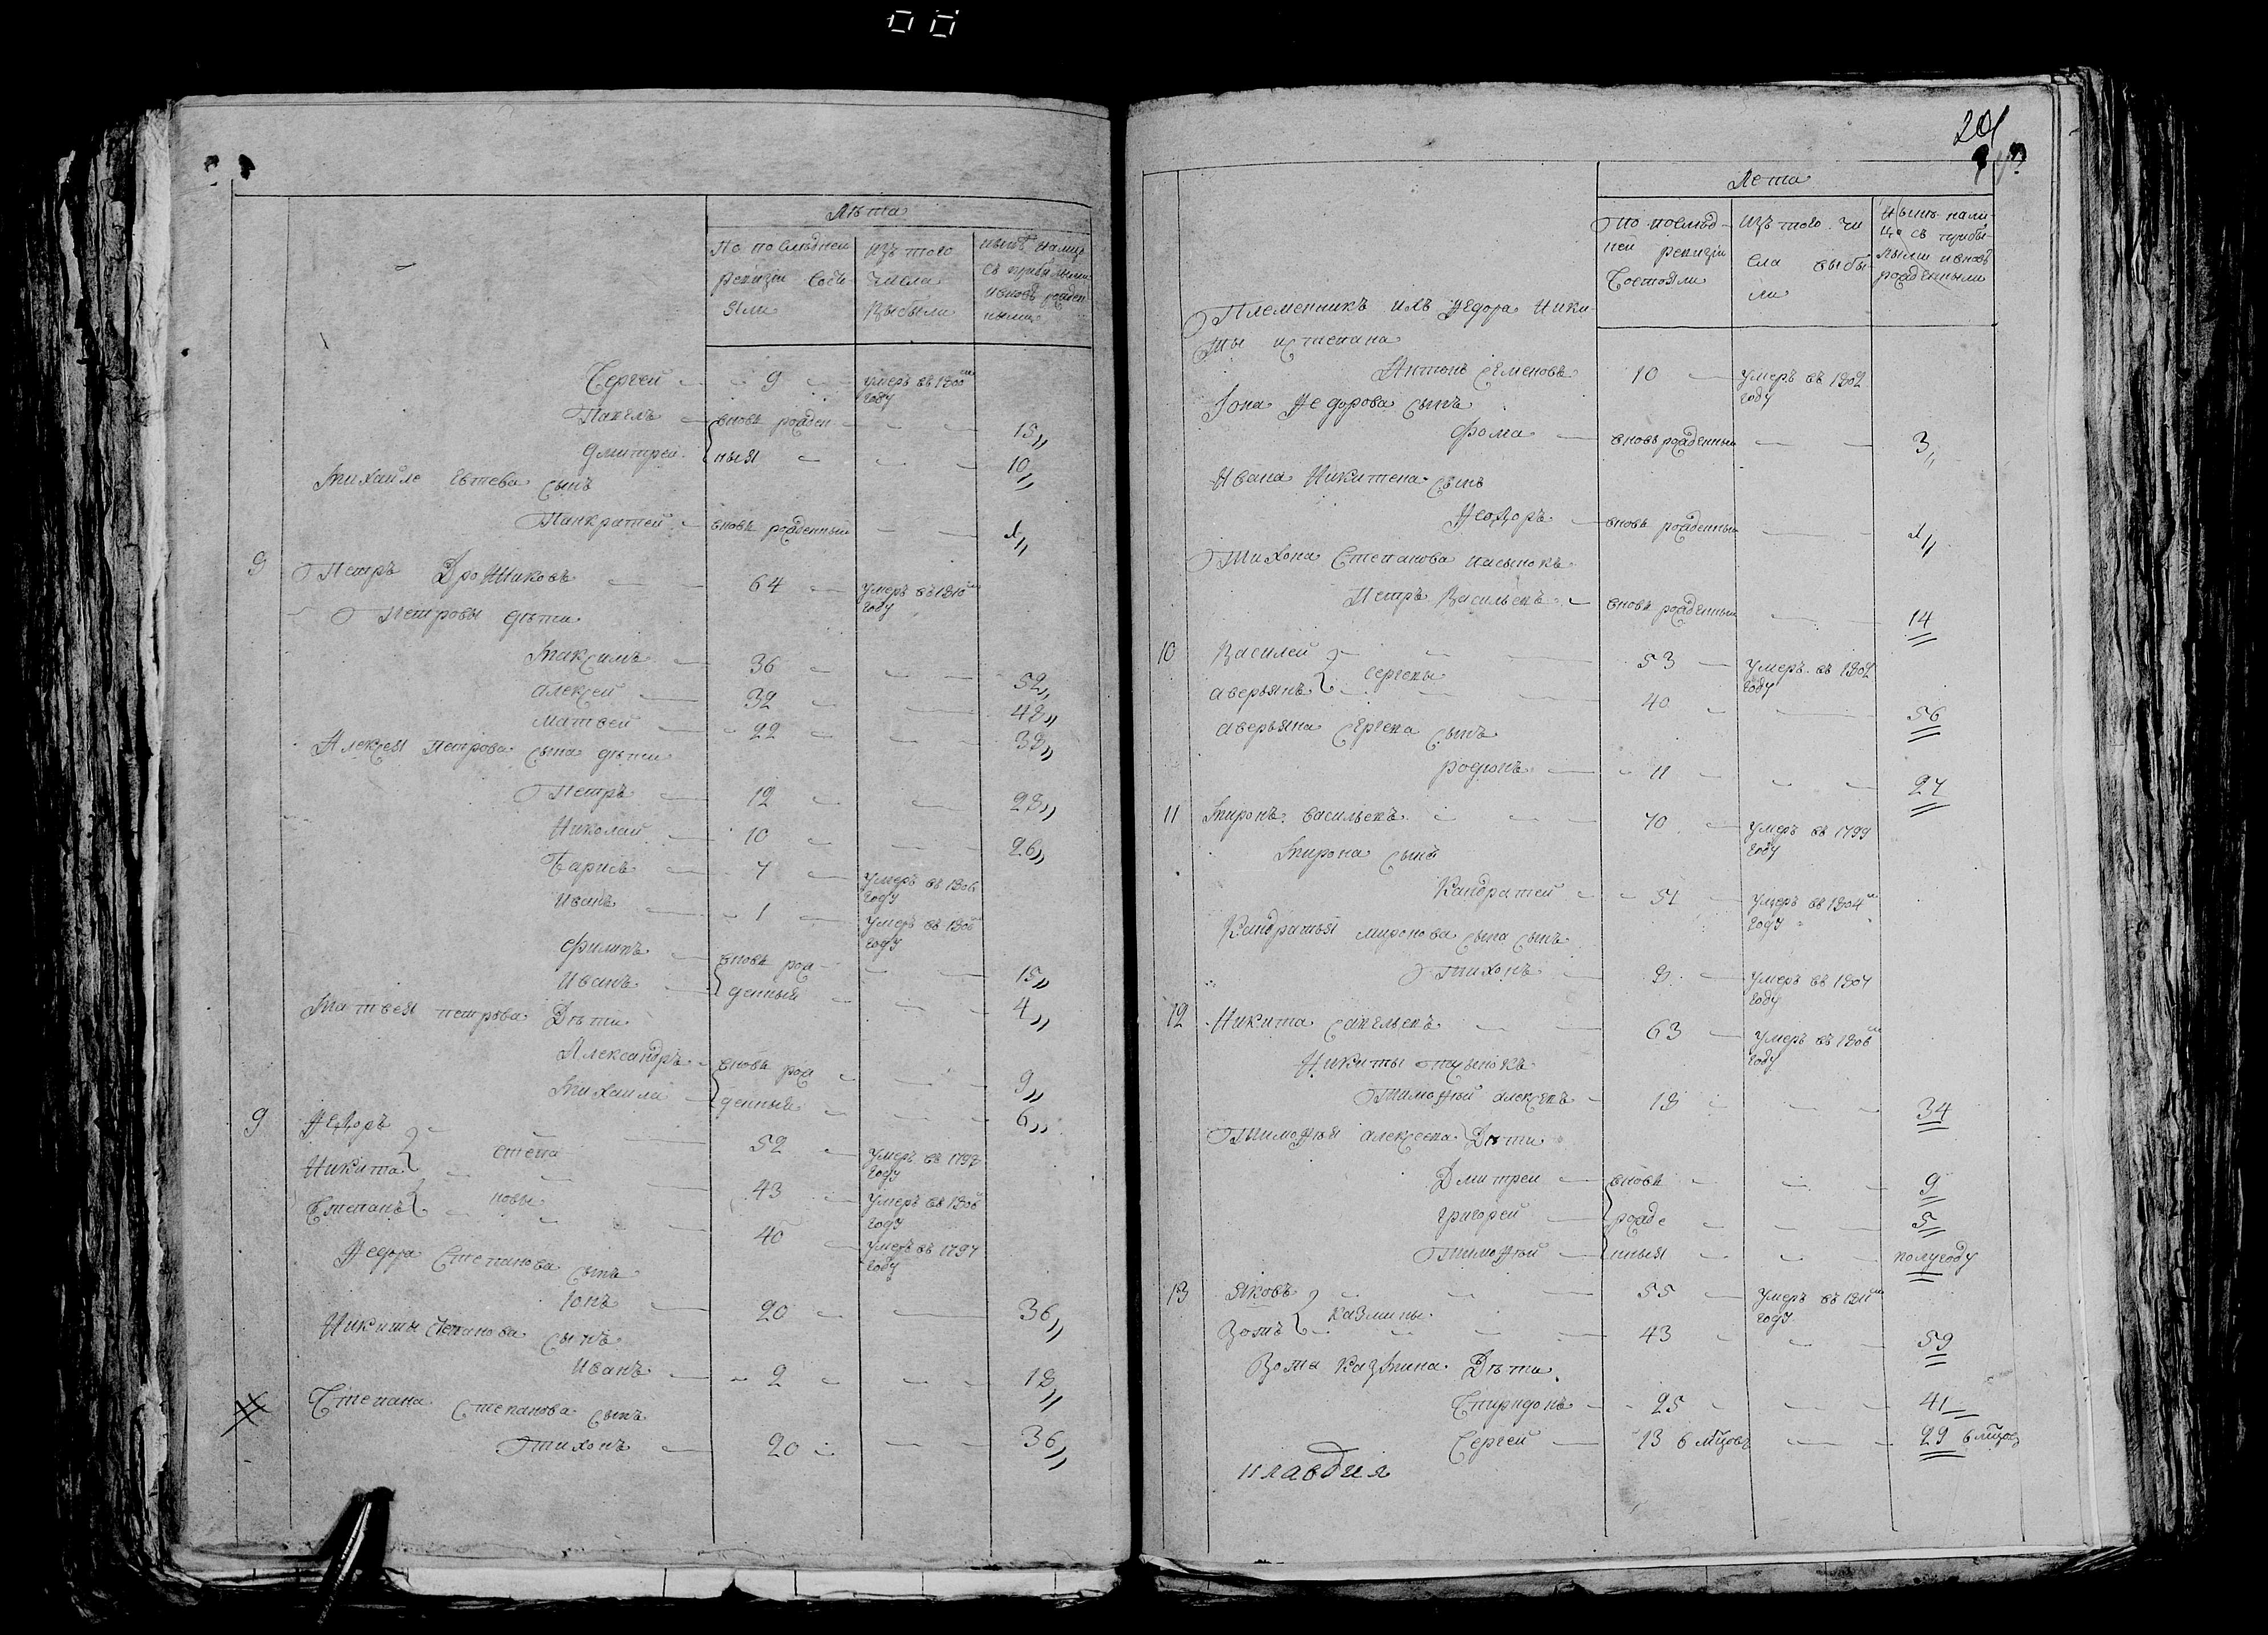 Лѣта
По последней изъ того нынѣ налицо
ревизіи состо числа съ прибылыми
яли выбыли и вновь рожден
ными
Сергей 9 умеръ въ 1800мъ
году
Павелъ вновь рожден 15
Дмитрей ныя 10
Михайле сынъ
Панкратей вновь рожденный 1
9 Петръ 64 умеръ въ 1810м
году
Петровы дѣти
Максимъ 36 52
Алексей 32 48
Матвей 22 38
Алексея Петрова сына дѣти
Петръ 12 28
Николай 10 26
Барисъ 7 умеръ въ 1806
году
Иванъ 1 умеръ въ 1806
году
Филипъ вновь рож 15
Иванъ денный 4
Матвея петрова Дѣти
Александръ вновь рож 9
Михаила денный 6
9 Федоръ 52 умеръ въ 1798
степа году
Никита 43 умеръ въ 1806
новы году
Степанъ 40 умеръ въ 1797
году
Федора Степанова сынъ
Іонъ 20 36
Никиты Степанова сынъ
Иванъ 2 18
Степана Степанова сынъ
Тихонъ 20 36
201
Лета
по послед изъ того чи нынѣ нали
ней ревизіи сла выбы цо съ прибы
состояли ли лыми и вновь
рожденными
Племенникъ ихъ Федора Ники
ты и Степана
Антонъ Семеновъ 10 умеръ въ 1802
году
Іона Федорова сынъ
Фома вновь рожденный 3
Ивана Никитена сынъ
Федоръ вновь рожденный 1
Тихона Степанова пасынокъ
Петръ Васильевъ вновь рожденный 14
10 Василей 53 умеръ въ 1802
Сергеевы году
Аверьянъ 40 56
Аверьяна Сергева сынъ
Родионъ 11 27
11 Миронъ Васильевъ 70 умеръ въ 1799
году
Мирона сынъ
Кандратей 51 умеръ въ 1804м
году
Кандратья миронова сына сынъ
Тихонъ 8 умеръ въ 1807
году
12 Никита Савельевъ 63 умеръ въ 1806м
году
Никиты пасынокъ
Тимофей алексевъ 18 34
Тимофея алексеева Дѣти
Дмитреи вновь 9
Григорей рожде 5
Тимофей нныя полугоду
13 Яковъ 55 умеръ въ 1811м
казмины году
Зотъ 43 59
Зота Казмина Дѣти
Спиридонъ 25 41
Сергей 13 6 мцовъ 29 6 мцовъ